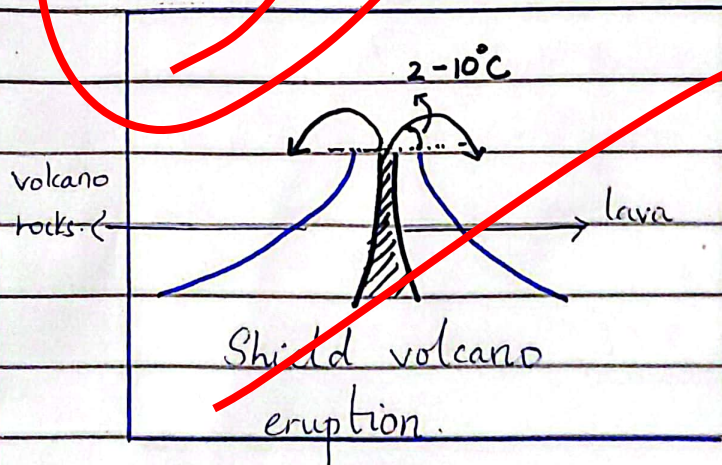 2-10°C
volcano
rocks
lava
Shield volcano
eruption.